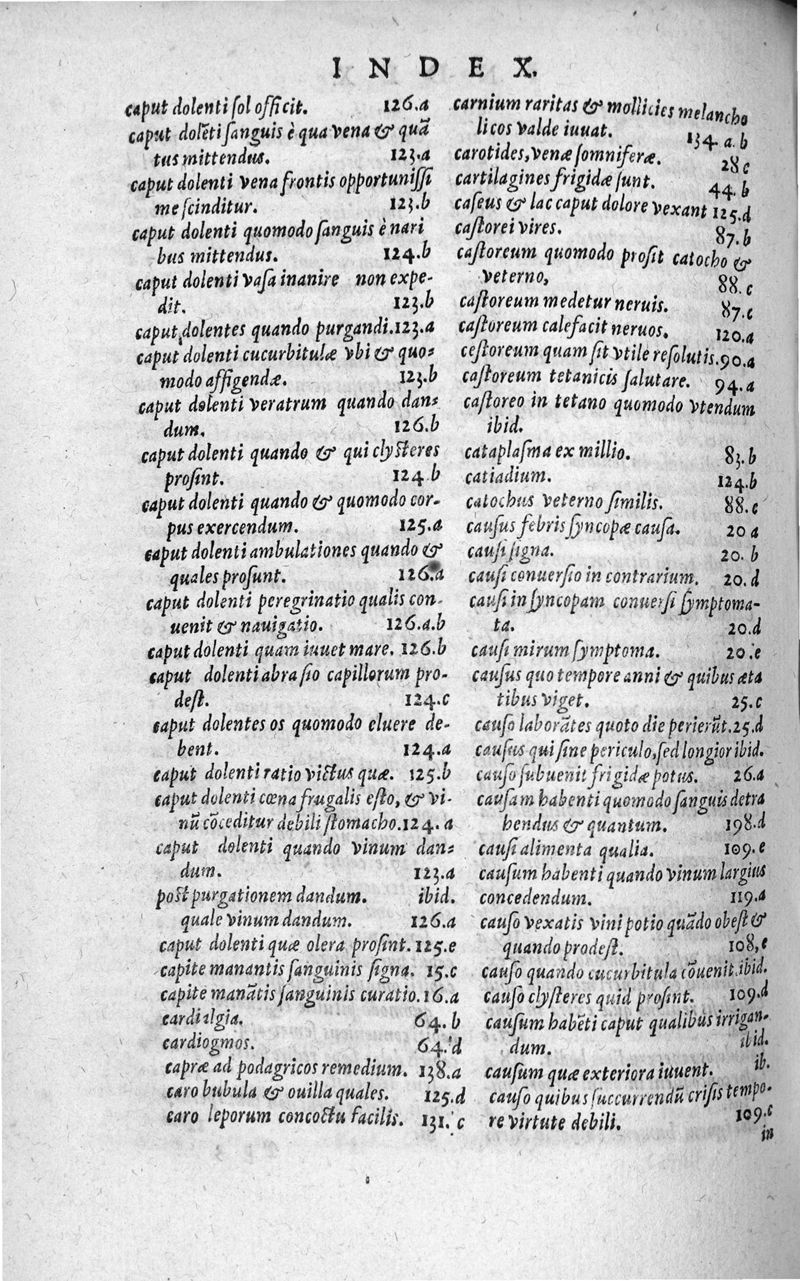 INDEX.
caput dolenti ſol officit. 126.a
caput dolẽti ſanguis è qua vena & quã
tus mittendus. 123.a
caput dolenti vena frontis opportuniſſi
me ſcinditur. 123.b
caput dolenti quomodo ſanguis è nari
bus mittendus. 124.b
caput dolenti vaſa inanire non expe-
dit. 123.b
caput dolentes quando purgandi. 123.a
caput dolenti cucurbitulæ vbi & quo-
modo affigendæ. 123.b
caput dolenti veratrum quando dan-
dum. 126.b
caput dolenti quando & qui clyſteres
proſint. 124 b
caput dolenti quando & quomodo cor-
pus exercendum. 125.a
caput dolenti ambulationes quando &
quales proſunt. 126.a
caput dolenti peregrinatio qualis con-
uenit & nauigatio. 126.a.b
caput dolenti quam iuuet mare. 126.b
caput dolenti abraſio capillorum pro-
deſt. 124.c
caput dolentes os quomodo eluere de-
bent. 124.a
caput dolenti ratio victus quæ. 125.b
caput dolenti cœna frugalis eſto, & vi-
nũ cõceditur debili ſtomacho. 124. a
caput dolenti quando vinum dan-
dum. 123.a
poſt purgationem dandum. ibid.
quale vinum dandum. 126.a
caput dolenti quæ olera proſint. 125.e
capite manantis ſanguinis ſigna. 15.c
capite manãtis ſanguinis curatio. 16.a
cardialgia. 64.b
cardiogmos. 64.d
capræ ad podagricos remedium. 138.a
caro bubula & ouilla quales. 125.d
caro leporum concoctu facilis. 131. c
carnium raritas & mollicies melancho
licos valde iuuat. 134.a.b
carotides, venæ ſomniferæ. 28 c
cartilagines frigidæ ſunt. 44.b
caſeus & lac caput dolore vexant 125.d
caſtorei vires. 87.b
caſtoreum quomodo proſit catocho &
veterno, 88.c
caſtoreum medetur neruis. 87.c
caſtoreum calefacit neruos. 120.a
ceſtoreum quam ſit vtile reſolutis. 90.a
caſtoreum tetanicis ſalutare. 94.a
caſtoreo in tetano quomodo vtendum
ibid.
cataplaſma ex millio. 83.b
catiadium. 124.b
catochus veterno ſimilis. 88.c
cauſus febris ſyncopæ cauſa. 20 a
cauſi ſigna. 20. b
cauſi conuerſio in contrarium. 20.d
cauſi in ſyncopam conuerſi ſymptoma-
ta. 20.d
cauſi mirum ſymptoma. 20.e
cauſus quo tempore anni & quibus æta
tibus viget. 25.c
cauſo laborãtes quoto die perierũt. 25.d
cauſus qui ſine periculo, ſed longior ibid.
cauſo ſubuenit frigidæ potus. 26.a
cauſam habenti quomodo ſanguis detra
hendus & quantum. 198.d
cauſi alimenta qualia. 109.e
cauſum habenti quando vinum largius
concedendum. 119.a
cauſo vexatis vini potio quãdo obeſt &
quando prodeſt. 108,e
cauſo quando cucurbitula cõuenit. ibid.
cauſo clyſteres quid proſint. 109.d
cauſum habẽti caput qualibus irrigan-
dum. ibid.
cauſum quæ exteriora iuuent. ib.
cauſo quibus ſuccurrendũ criſis tempo-
re virtute debili. 109.c
in